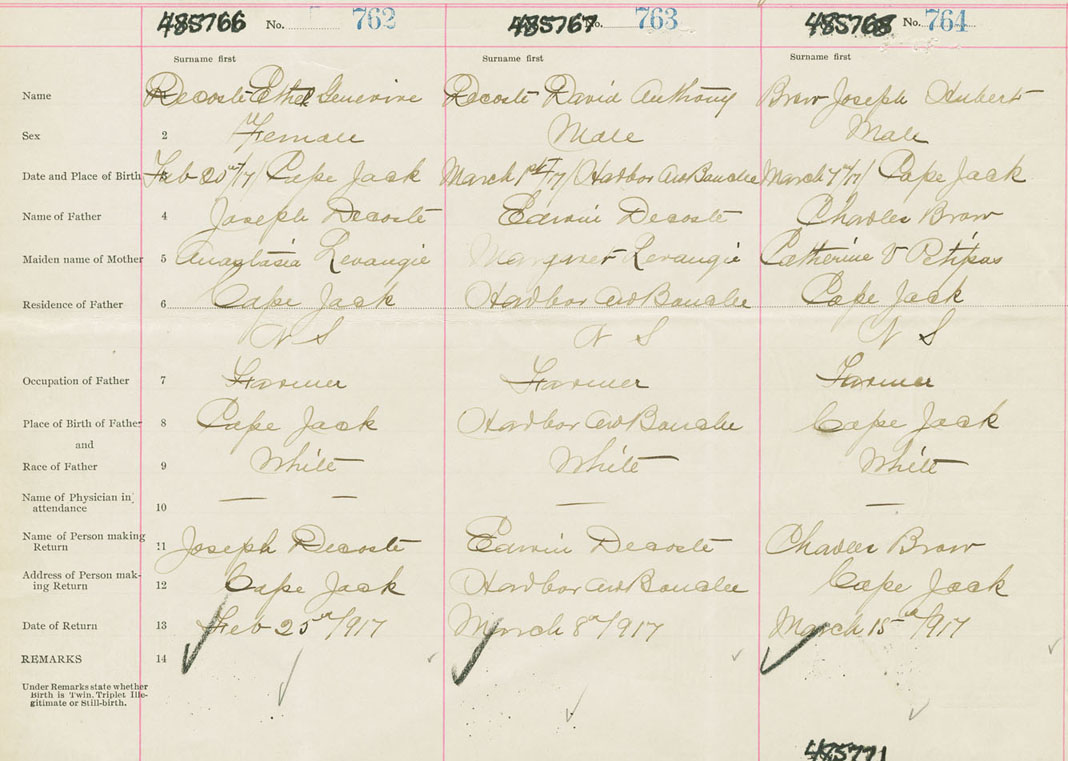 485766 No. 762 485767 No. 763 485768 No. 764
Surname first Surname first Surname first
Name Decoste Ethel Genevive Decoste David Anthony Brow Joseph Hubert
Sex 2 Female Male Male
Date and Place of Birth Feb 20th/17/ Cape Jack March 1st/17/ Harbor au Bouche March 7th/17/ Cape Jack
Name of Father 4 Joseph Decoste Edwin Decoste Charles Brow
Maiden name of Mother 5 Anastasia Levangie Margaret Levangie Catherine V Petipas
Residence of Father 6 Cape Jack Harbor au Bouche Cape Jack
N S N S N S
Occupation of Father 7 Farmer Farmer Farmer
Place of Birth of Father 8 Cape Jack Harbor au Bouche Cape Jack
and
Race of Father 9 White White White
Name of Physician in
attendance 10 — — — —
Name of Person making
Return 11 Joseph Decoste Edwin Decoste Charles Brow
Address of Person mak-
ing Return 12 Cape Jack Harbor au Bouche Cape Jack
Date of Return 13 Feb 25th/917 March 8th/917 March 15th/917
REMARKS 14
Under Remarks state whether
Birth is Twin, Triplet Ille-
gitimate or Still-birth.
485771